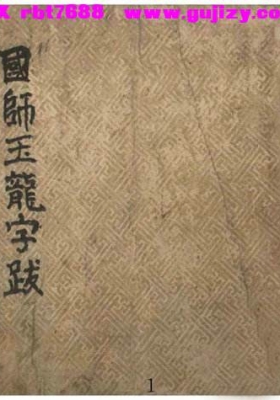 X rbt7688 www.gujizy.c
國師玉龍字跋
1